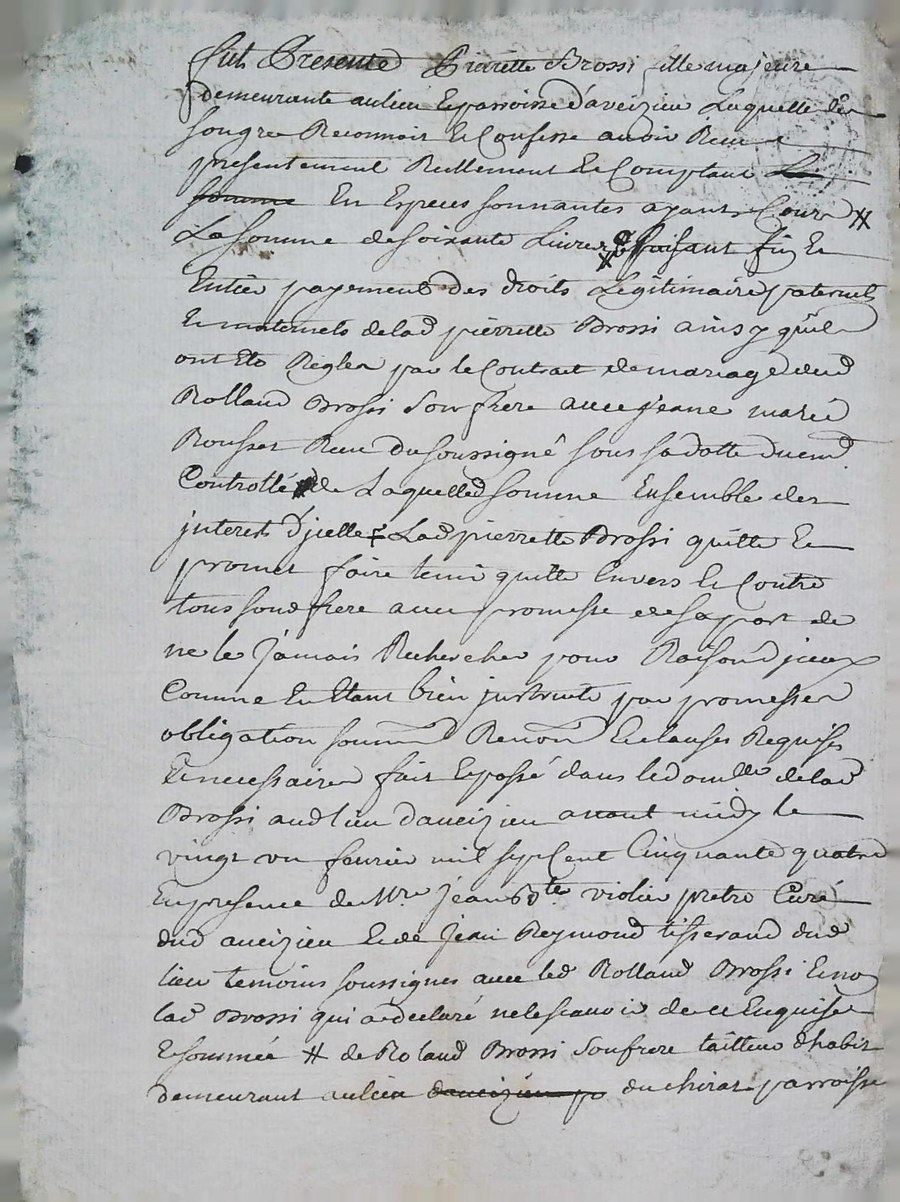 fut Presente Pierrette Brossi fille majeure
demeurante au lieu & parroisse d'aveizieu Laquelle de
son gre Reconnoit & Confesse avoir Receu
presentement Reellement & Comptant La
somme En Especes sonnantes ayants Cours #
La somme de soixante Livres # & faisant fin &
Entier payement des droits Légitimaires paternels
& maternels de lad pierrette Brossi ainsy qu'il
ont Eté Reglés par le Contrat de mariage dud
Rolland Brossi Son frere avec jeane marie
Rousset Receu du soussigné sous sa datte duemd
Controllé de Laquelled somme Ensemble des
interets d'jcelle Lad pierrette Brossi quitte &
promet faire tenir quitte Envers & Contre
tous sond frere avec promesse de sa part de
ne le jamais Rechercher pour Raison d'jceux
Comme En Etant bien instruite par promesses
obligation soumm Renon & clauses Requises
& necessaires fait & passé dans le domlle de lad
Brossi aud lieu d'aveizieu avant midy le
vingt un fevrier mil sept Cent Cinquante quatre
En presence de Mre jean Bte violier pretre Curé
dud aveizieu & de Jean Reymond tisserand dud
lieu temoins soussignes avec led Rolland Brossi & no
lad Brossi qui a declaré ne le scavoir de ce Enquise
& sommée # de Roland Brossi son frere tailleur d'habit
demeurant au lieu daveizieu pa du chirat parroisse